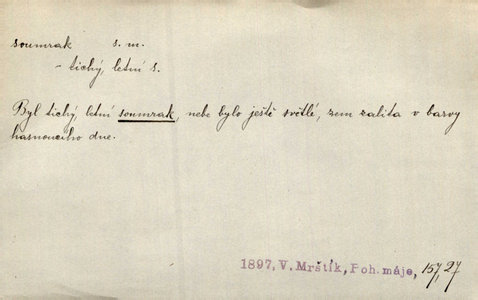 soumrak s. m.
- tichý, letní s.
Byl tichý, letní soumrak, nebe bylo ještě světlé, zem zalita v barvy
hasnoucího dne.
1897, V. Mrštík, Poh. máje, 157, 27